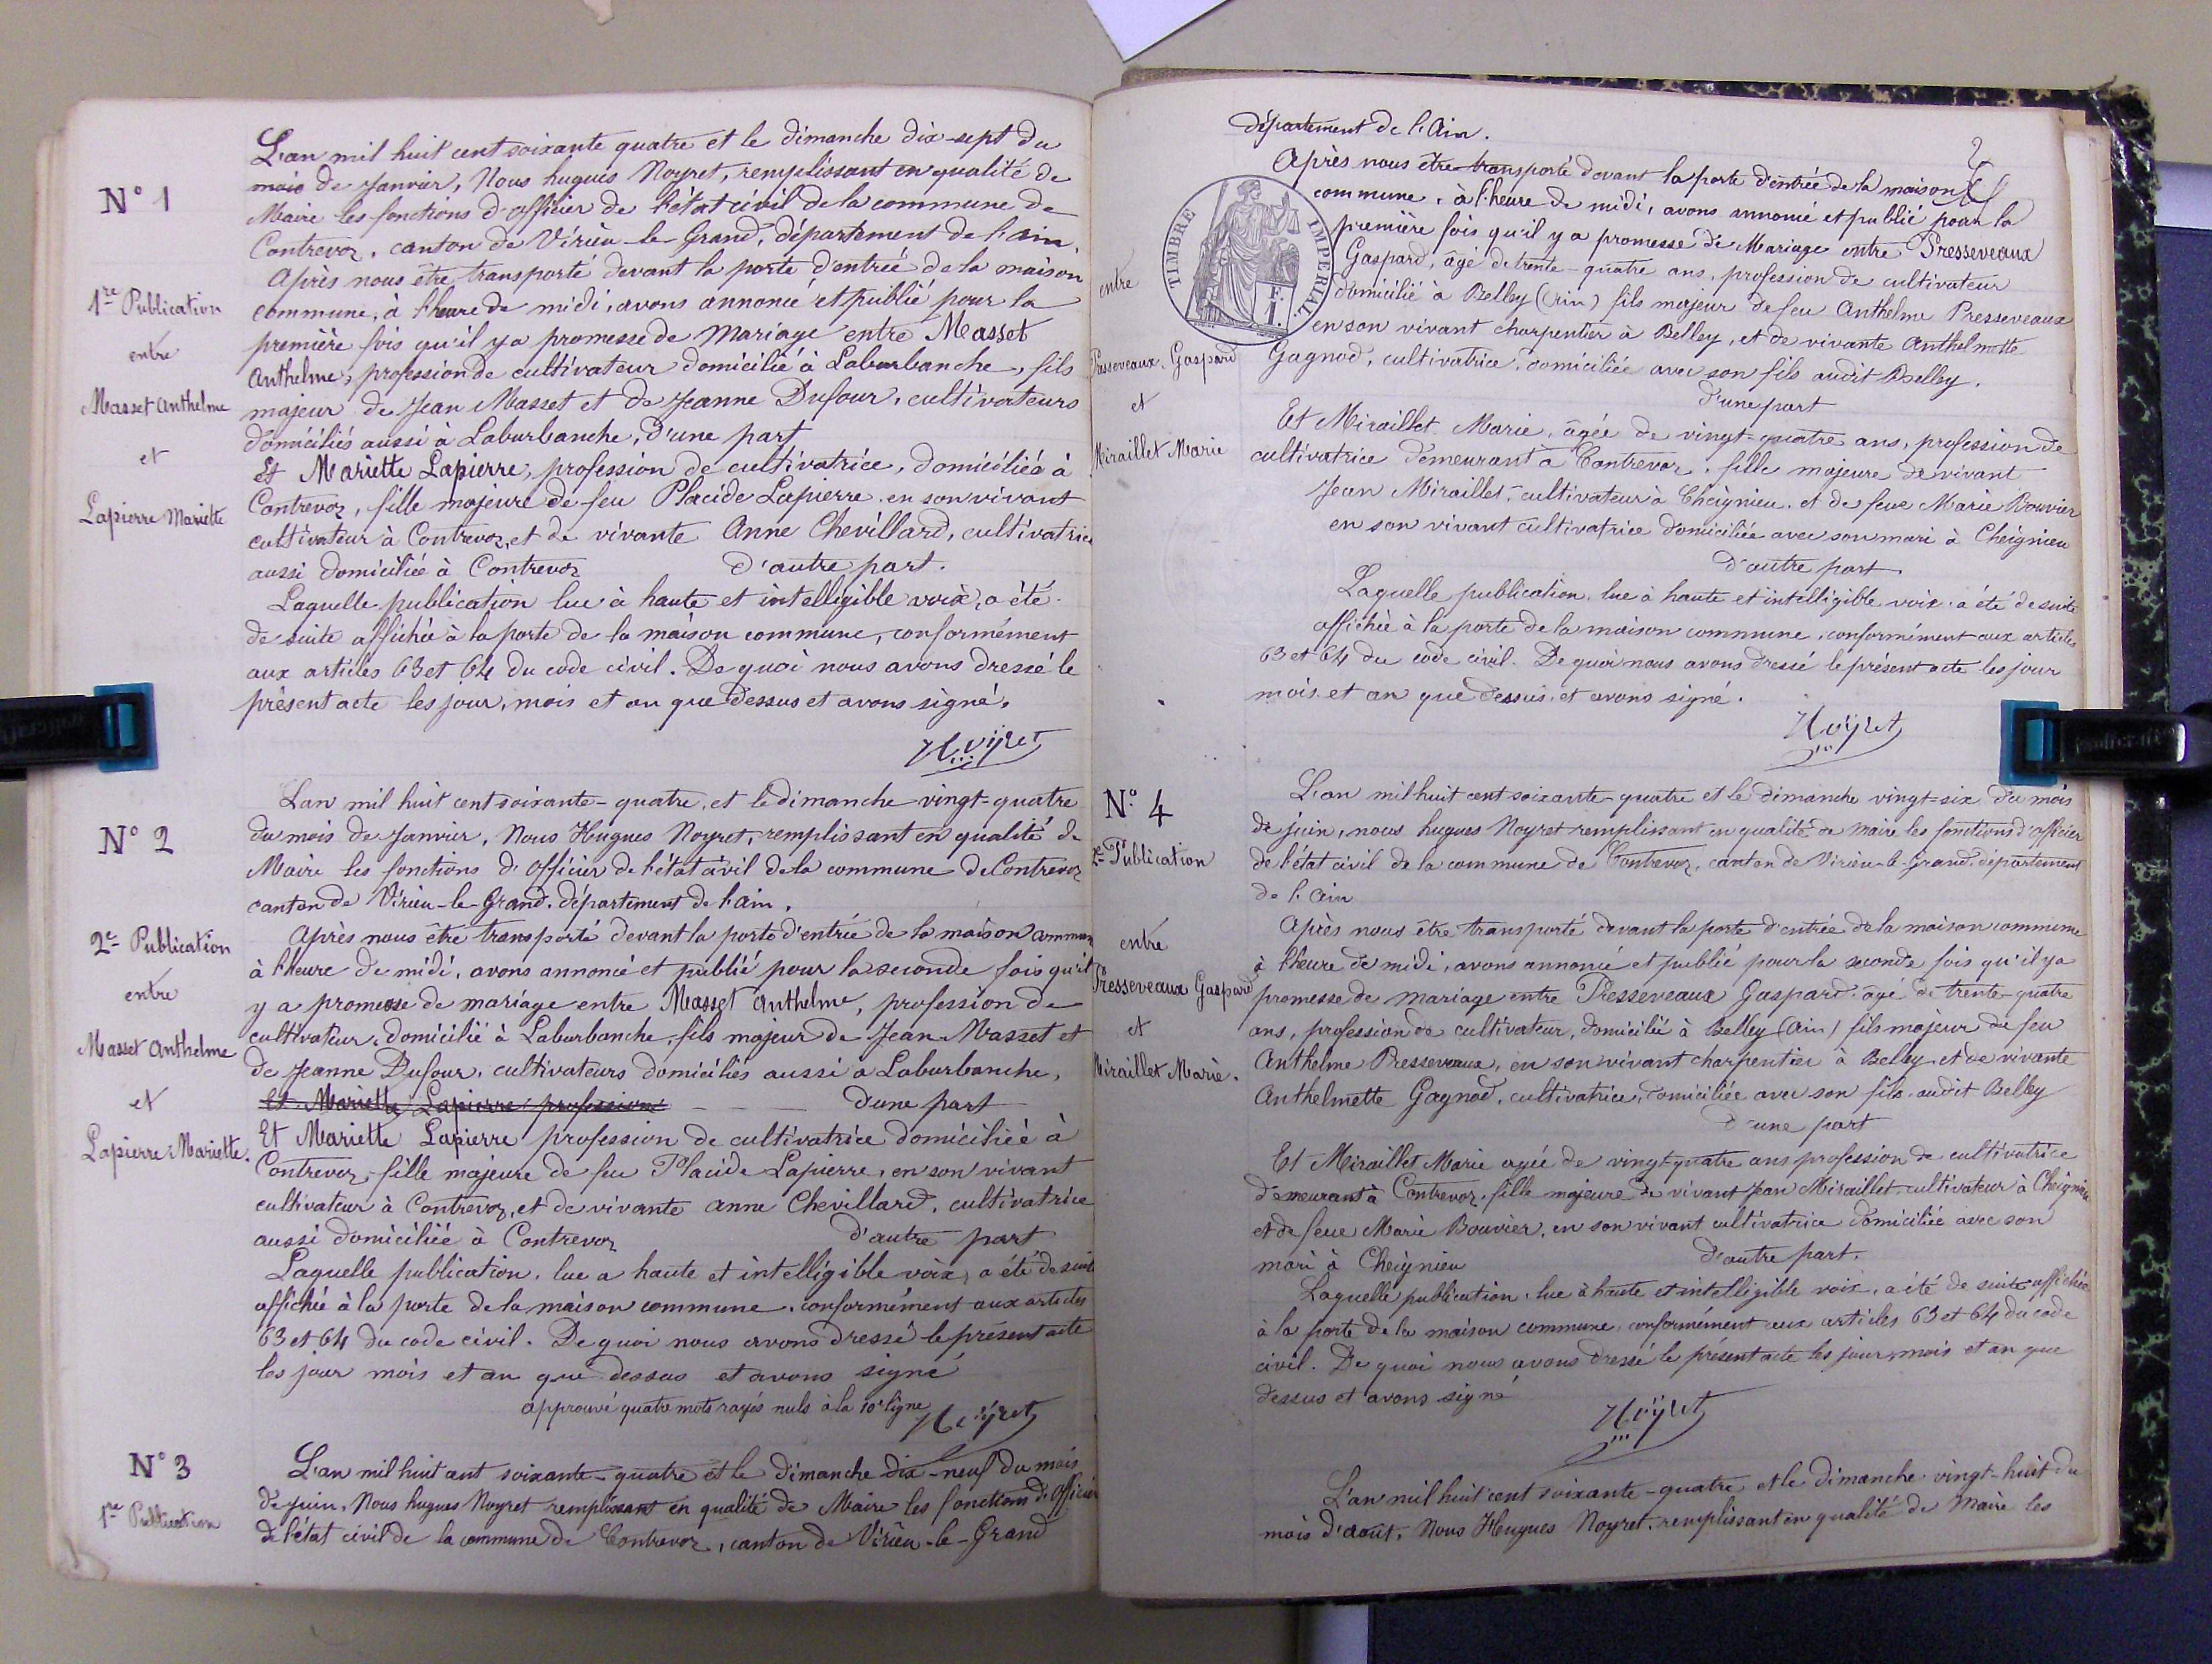 N° 1
1re Publication
entre
Masset Anthelme
et
Lapierre Mariette
L'an mil huit cent soixante quatre et le dimanche dix-sept du
mois de Janvier, Nous hugues Noyret, remplissant en qualité de
Maire les fonctions d'officier de l'état civil de la commune de
Contrevoz, canton de Virieu-le-Grand, département de l'ain.
Après nous être transporté devant la porte d'entrée de la maison
commune, à l'heure de midi, avons annoncé et publié pour la
première fois qu'il y a promesse de Mariage entre Masset
Anthelme, profession de cultivateur domicilié à Laburbanche, fils
majeur de Jean Masset et de Jeanne Dufour, cultivateurs
domiciliés aussi à Laburbanche, d'une part
Et Mariette Lapierre, profession de cultivatrice, domiciliée à
Contrevoz, fille majeure de feu Placide Lapierre en son vivant
cultivateur à Contrevoz, et de vivante Anne Chevillard, cultivatrice
aussi domiciliée à Contrevoz d'autre part.
Laquelle publication lue à haute et intelligible voix, a été
de suite affichée à la porte de la maison commune, conformément
aux articles 63 et 64 du code civil. De quoi nous avons dressé le
présent acte les jour, mois et an que dessus et avons signé.
Noyret
N° 2
2e Publication
entre
Masset Anthelme
et
Lapierre Mariette.
L'an mil huit cent soixante-quatre, et le dimanche vingt-quatre
du mois de Janvier, Nous Hugues Noyret, remplissant en qualité de
Maire les fonctions d'officier de l'état civil de la commune de Contrevoz
canton de Virieu-le-Grand, département de l'ain.
Après nous être transporté devant la porte d'entrée de la maison commune
à l'heure de midi, avons annoncé et publié pour la seconde fois qu'il
y a promesse de mariage entre Masset Anthelme, profession de
cultivateur, domicilié à Laburbanche, fils majeur de Jean Masset et
de Jeanne Dufour, cultivateurs domiciliés aussi à Laburbanche,
Et Mariette Lapierre profession d'une part
Et Mariette Lapierre profession de cultivatrice domiciliée à
Contrevoz, fille majeure de feu Placide Lapierre, en son vivant
cultivateur à Contrevoz, et de vivante anne Chevillard, cultivatrice
aussi domiciliée à Contrevoz d'autre part
Laquelle publication, lue a haute et intelligible voix, a été de suite
affichée à la porte de la maison commune, conformément aux articles
63 et 64 du code civil. De quoi nous avons dressé le présent acte
les jour mois et an que dessus et avons signé
approuvé quatre mots rayés nuls à la 10e ligne
Noyret
N° 3
1re Publication
L'an mil huit cent soixante-quatre et le dimanche dix-neuf du mois
de Juin, Nous hugues Noyret remplissant en qualité de Maire les fonctions d'officier
de l'état civil de la commune de Contrevoz, canton de Virieu-le-Grand
département de l'Ain.
TIMBRE IMPERIAL
F. 1.
entre
Presseveaux Gaspard
et
Miraillet Marie
Après nous être transporté devant la porte d'entrée de la maison
commune, à l'heure de midi, avons annoncé et publié pour la
première fois qu'il y a promesse de Mariage entre Presseveaux
Gaspard, âgé de trente-quatre ans, profession de cultivateur
domicilié à Belley (Ain) fils majeur de feu Anthelme Presseveaux
en son vivant charpentier à Belley, et de vivante Anthelmette
Gagnod, cultivatrice, domiciliée avec son fils audit Belley.
d'une part
Et Miraillet Marie, âgée de vingt-quatre ans, profession de
cultivatrice demeurant à Contrevoz, fille majeure de vivant
Jean Miraillet, cultivateur à Cheignieu, et de feue Marie Bouvier
en son vivant cultivatrice domiciliée avec son mari à Cheignieu
d'autre part.
Laquelle publication, lue à haute et intelligible voix, a été de suite
affichée à la porte de la maison commune, conformément aux articles
63 et 64 du code civil. De quoi nous avons dressé le présent acte les jour
mois et an que dessus, et avons signé.
Noyret
N° 4
2e Publication
entre
Presseveaux Gaspard
et
Miraillet Marie.
L'an mil huit cent soixante-quatre et le dimanche vingt-six du mois
de juin, nous hugues Noyret remplissant en qualité de maire les fonctions d'officier
de l'état civil de la commune de Contrevoz, canton de Virieu-le-Grand, département
de l'Ain
Après nous être transporté devant la porte d'entrée de la maison commune
à l'heure de midi, avons annoncé et publié pour la seconde fois qu'il y a
promesse de mariage entre Presseveaux Gaspard, âgé de trente-quatre
ans, profession de cultivateur, domicilié à Belley (Ain) fils majeur de feu
Anthelme Presseveaux, en son vivant charpentier à Belley et de vivante
Anthelmette Gagnod, cultivatrice, domiciliée avec son fils audit Belley
d'une part
Et Miraillet Marie agée de vingt-quatre ans profession de cultivatrice
demeurant à Contrevoz, fille majeure de vivant Jean Miraillet, cultivateur à Cheignieu
et de feue Marie Bouvier, en son vivant cultivatrice domiciliée avec son
mari à Cheignieu d'autre part.
Laquelle publication, lue à haute et intelligible voix, a été de suite affichée
à la porte de la maison commune, conformément aux articles 63 et 64 du code
civil. De quoi nous avons dressé le présent acte les jour, mois et an que
dessus et avons signé
Noyret
L'an mil huit cent soixante-quatre et le dimanche vingt-huit du
mois d'août, Nous Hugues Noyret, remplissant en qualité de Maire les